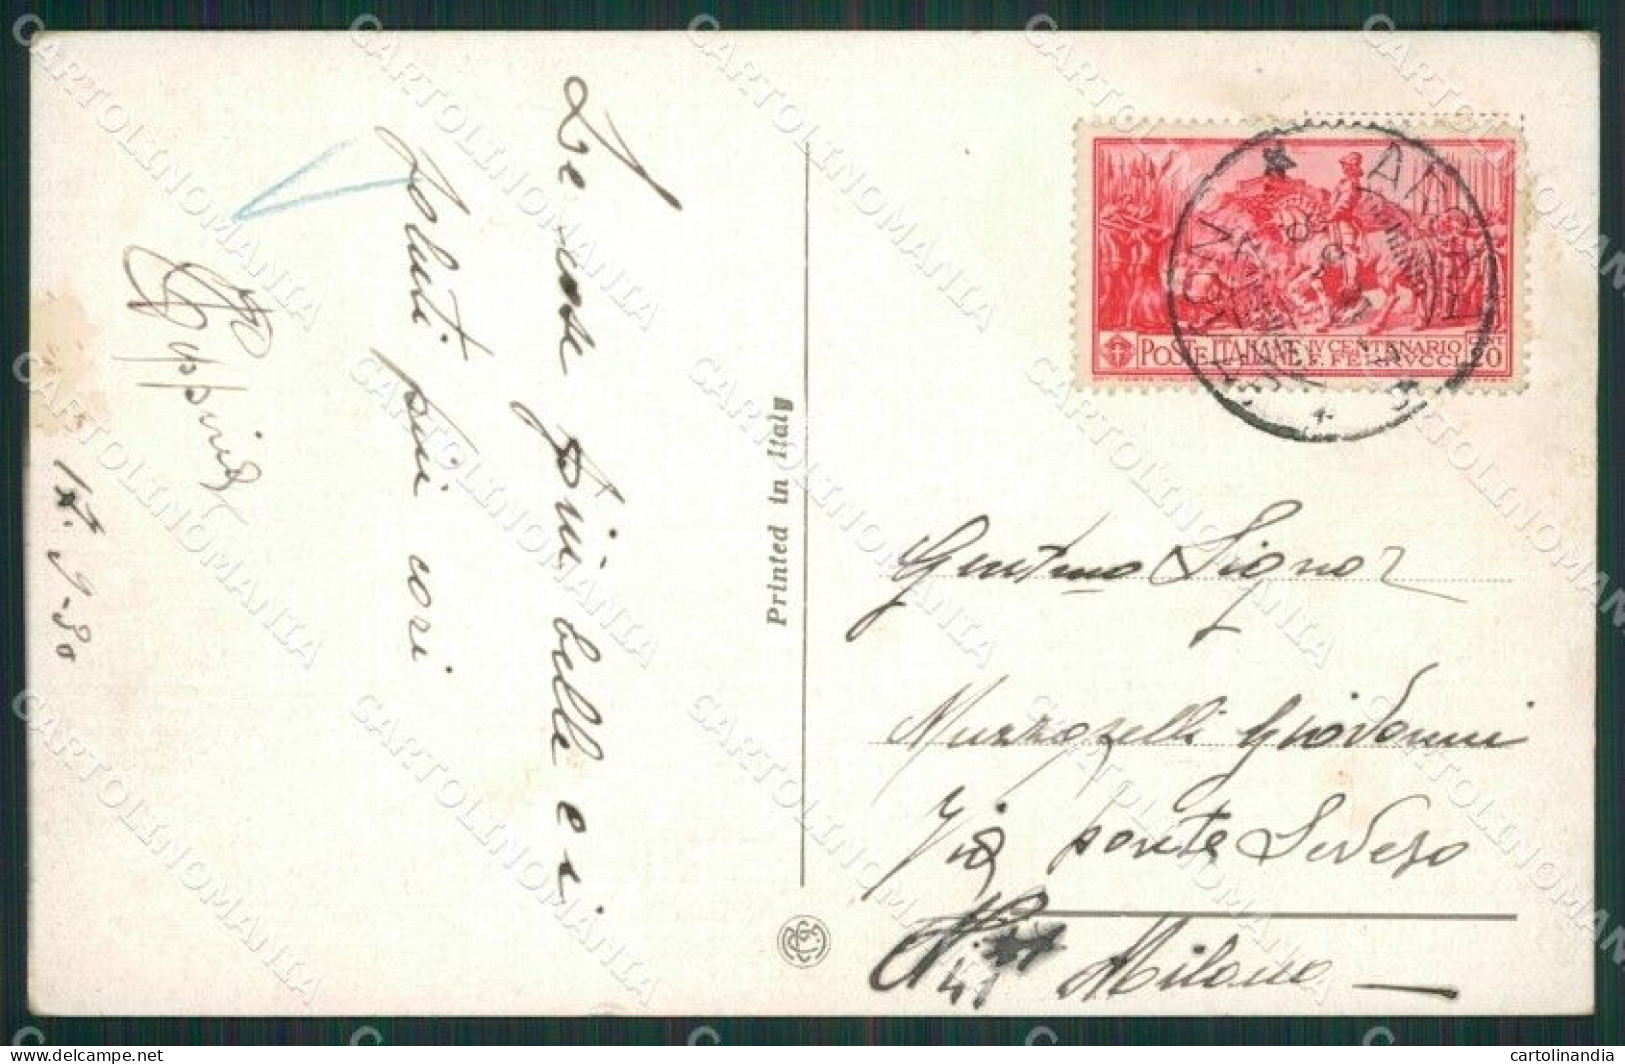 Le cose più belle e i
saluti più cari
17.9-30
Printed in Italy
POSTE ITALIANE IV CENTENARIO
F. FERRVCCI CENT. 20
Gentmo Signor
Muzzopelli Giovanni
Via ponte Seveso
Milano
CARTOLINOMANIA
cartolinandia